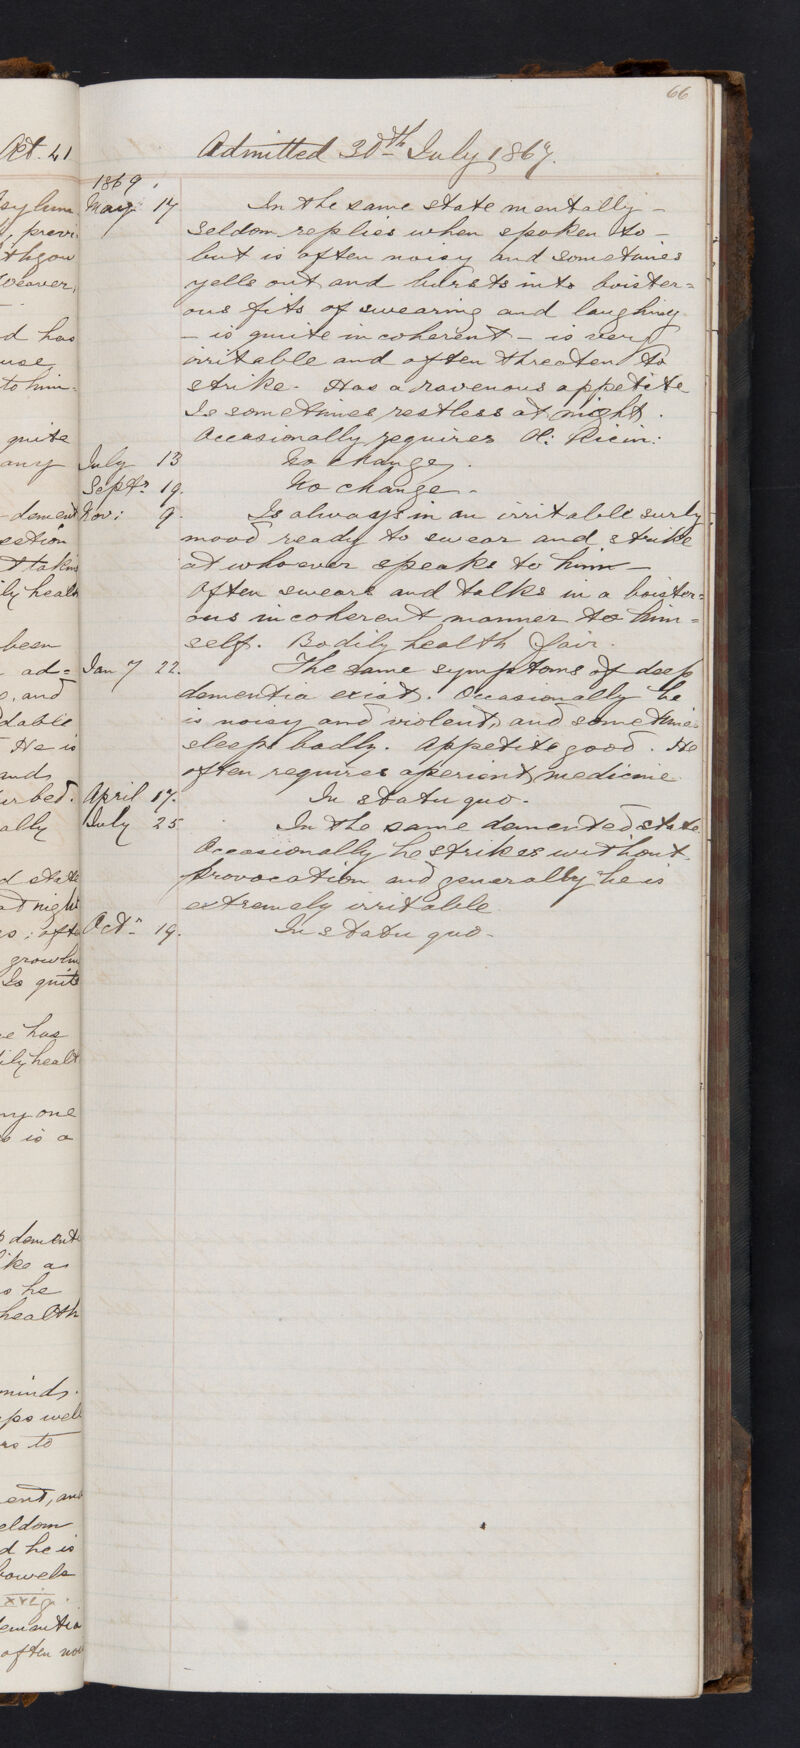 66
Admitted 30th July 1867.
1869.
May 17 In the same state mentally –
Seldom replies when spoken to –
but is often noisy and sometimes
yells out and bursts into boister=
ous fits of swearing and laughing
– is quite incoherent – is very
irritable and often threatens to
strike. Has a ravenous appetite
Is sometimes restless at night.
Occasionally requires Ol: Ricin:
July 13 No change.
Septr 19. No change.
Nov: 9. Is always in an irritable surly
mood ready to swear and strike
at whoever speaks to him –
Often swears and talks in a boister=
ous incoherent manner to him=
self. Bodily health fair.
Jan 7 22. The same symptoms of deep
dementia exist. Occasionally he
is noisy and violent, and sometimes
sleeps badly. Appetite good. He
often requires aperient medicine.
April 17. In statu quo.
July 25 In the same demented state
Occasionally he strikes without
provocation and generally he is
extremely irritable
Octr 19. In statu quo.
Act. 21
asylum
, previ
thgow
weaver,
d has
use
to him.
quite
any
dement
ection
t takin
ily healt
been
ad=
, and
dable
He is
ands
ur bed.
ally
d state
at night
so; afte
growlin
Is quite
e has
ily healt
ny one
o is a
dement
like a
s he
health
minds.
eps well
rs to
ent, and
eldom
d he is
bowels
xvi
dementia
often no